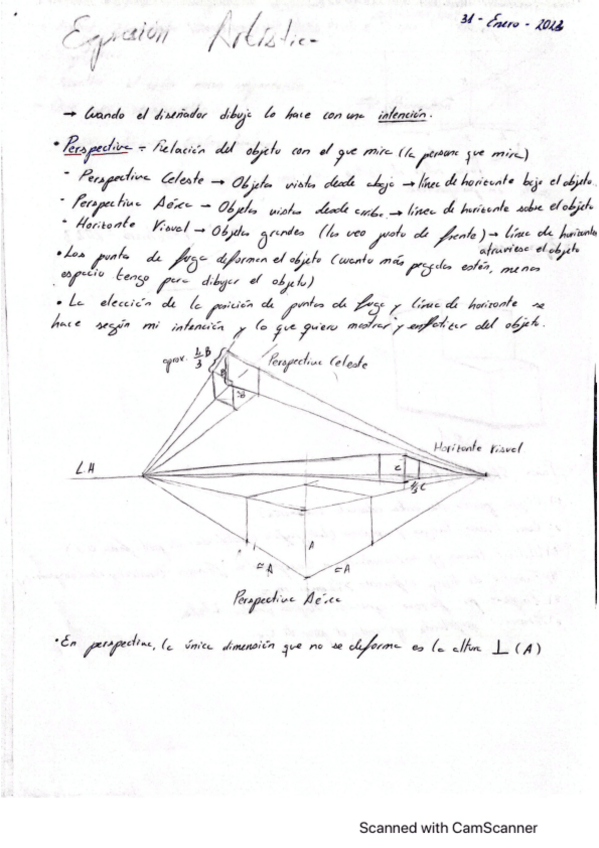 Expresión Artística
31 - Enero - 2023
→ Cuando el diseñador dibuja lo hace con una intención.
• Perspectiva = Relación del objeto con el que mira (la persona que mira)
- Perspectiva Celeste → Objetos vistos desde abajo → línea de horizonte bajo el objeto
- Perspectiva Aérea → Objetos vistos desde arriba → línea de horizonte sobre el objeto
- Horizonte Visual → Objetos grandes (los veo justo de frente) → Línea de horizonte
atraviesa el objeto
• Los puntos de fuga deforman el objeto (cuanto más pegados estén, menos
espacio tengo para dibujar el objeto)
• La elección de la posición de puntos de fuga y línea de horizonte se
hace según mi intención y lo que quiero mostrar y enfatizar del objeto.
aprox.
B
Perspectiva Celeste
Horizonte Visual
LH
C
A
≈A
≈A
Perspectiva Aérea
• En perspectiva, la única dimensión que no se deforma es la altura ⊥ (A)
Scanned with CamScanner